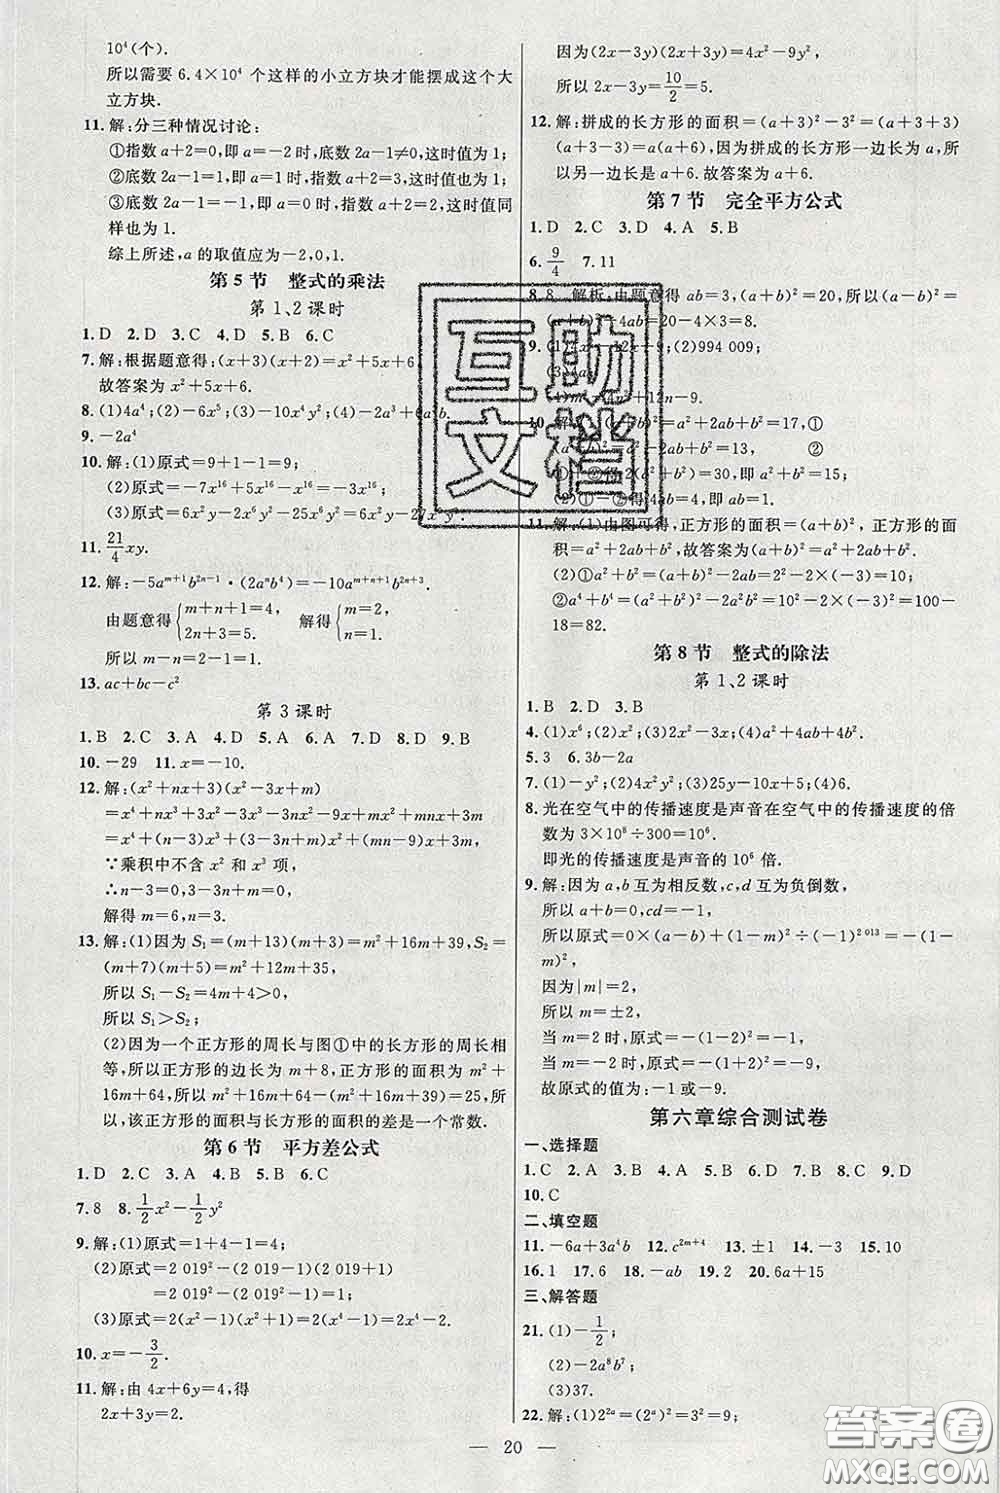 10⁴(个).
所以需要 6.4×10⁴ 个这样的小立方块才能摆成这个大
立方块.
11. 解:分三种情况讨论:
①指数 a+2=0,即 a=-2时,底数 2a-1≠0,这时值为 1;
②底数 2a-1=1,即 a=1时,指数 a+2=3,这时值也为 1;
③底数 2a-1=-1,即 a=0时,指数 a+2=2,这时值同
样也为 1.
综上所述,a 的取值应为-2,0,1.
第 5 节 整式的乘法
第 1、2 课时
1. D 2. D 3. C 4. D 5. B 6. C
7. 解:根据题意得:(x+3)(x+2)=x²+5x+6
故答案为 x²+5x+6.
8. (1)4a⁴;(2)-6x⁵;(3)-10x⁴y²;(4)-2a³+6a²b.
9. -2a⁴
10. 解:(1)原式=9+1-1=9;
(2)原式=-7x¹⁶+5x¹⁶-x¹⁶=-3x¹⁶;
(3)原式=6x²y-2x y²-25x²y²+6x y²-27x y.
11. 21/4 xy.
12. 解:-5aᵐ⁺¹b²ⁿ⁻¹·(2aⁿb⁴)=-10aᵐ⁺ⁿ⁺¹b²ⁿ⁺³.
由题意得{m+n+1=4, 2n+3=5. 解得{m=2, n=1.
所以 m-n=2-1=1.
13. ac+bc-c²
第 3 课时
1. B 2. C 3. A 4. D 5. A 6. A 7. D 8. D 9. B
10. -29 11. x=-10.
12. 解:(x²+nx+3)(x²-3x+m)
=x⁴+nx³+3x²-3x³-3nx²-9x+mx²+mnx+3m
=x⁴+(n-3)x³+(3-3n+m)x²+(mn-9)x+3m
∵乘积中不含 x² 和 x³ 项,
∴n-3=0,3-3n+m=0,
解得 m=6,n=3.
13. 解:(1)因为 S₁=(m+13)(m+3)=m²+16m+39,S₂=
(m+7)(m+5)=m²+12m+35,
所以 S₁-S₂=4m+4>0,
所以 S₁>S₂;
(2)因为一个正方形的周长与图①中的长方形的周长相
等,所以正方形的边长为 m+8,正方形的面积为 m²+
16m+64,所以 m²+16m+64-(m²+16m+39)=25,所
以,该正方形的面积与长方形的面积的差是一个常数.
第 6 节 平方差公式
1. D 2. C 3. A 4. B 5. B 6. C
7. 8 8. 1/2 x²-1/2 y²
9. 解:(1)原式=1+4-1=4;
(2)原式=2 019²-(2 019-1)(2 019+1)
=2 019²-2 019²+1=1;
(3)原式=2(x²-1)(x²+1)=2(x⁴-1)=2x⁴-2.
10. x=-3/2.
11. 解:由 4x+6y=4,得
2x+3y=2.
因为(2x-3y)(2x+3y)=4x²-9y²,
所以 2x-3y=10/2=5.
12. 解:拼成的长方形的面积=(a+3)²-3²=(a+3+3)
(a+3-3)=a(a+6),因为拼成的长方形一边长为 a,所
以另一边长是 a+6.故答案为 a+6.
第 7 节 完全平方公式
1. D 2. C 3. D 4. A 5. B
6. 9/4 7. 11
8. 8 解析:由题意得 ab=3,(a+b)²=20,所以(a-b)²=
(a+b)²-4ab=20-4×3=8.
9. (1)4x²-12x+9;(2)994 009;
(3)4a;
(4)m²-4n²+12n-9.
10. 解:(a+b)²=a²+2ab+b²=17,①
(a-b)²=a²-2ab+b²=13, ②
(1)①+②得:2(a²+b²)=30,即 a²+b²=15;
(2)①-②得 4ab=4,即 ab=1.
11. 解:(1)由图可得,正方形的面积=(a+b)²,正方形的面
积=a²+2ab+b².故答案为(a+b)²=a²+2ab+b².
(2)①a²+b²=(a+b)²-2ab=2²-2×(-3)=10;
②a⁴+b⁴=(a²+b²)²-2a²b²=10²-2×(-3)²=100-
18=82.
第 8 节 整式的除法
第 1、2 课时
1. B 2. D 3. B
4. (1)x⁶;(2)x²;(3)2x²-3x;(4)a²+4ab+4b².
5. 3 6. 3b-2a
7. (1)-y²;(2)4x²y²;(3)25y-10x+5;(4)6.
8. 光在空气中的传播速度是声音在空气中的传播速度的倍
数为 3×10⁸÷300=10⁶.
即光的传播速度是声音的 10⁶ 倍.
9. 解:因为 a,b 互为相反数,c,d 互为负倒数,
所以 a+b=0,cd=-1,
所以原式=0×(a-b)+(1-m)²÷(-1)²⁰¹³=-(1-
m)²,
因为|m|=2,
所以 m=±2,
当 m=2 时,原式=-(1-2)²=-1,
当 m=-2 时,原式=-(1+2)²=-9,
故原式的值为:-1 或-9.
第六章综合测试卷
一、选择题
1. C 2. D 3. B 4. A 5. A 6. D 7. D 8. C 9. D
10. C
二、填空题
11. -6a+3a⁴b 12. c²ᵐ⁺⁴ 13. ±1 14. -3 15. 10
16. 1 17. 6 18. -ab 19. 2 20. 6a+15
三、解答题
21. (1)-1/2;
(2)-2a⁸b⁷;
(3)37.
22. 解:(1)2²ᵃ=(2ᵃ)²=3²=9;
— 20 —
互助
文档
答案卷
MXQE.COM